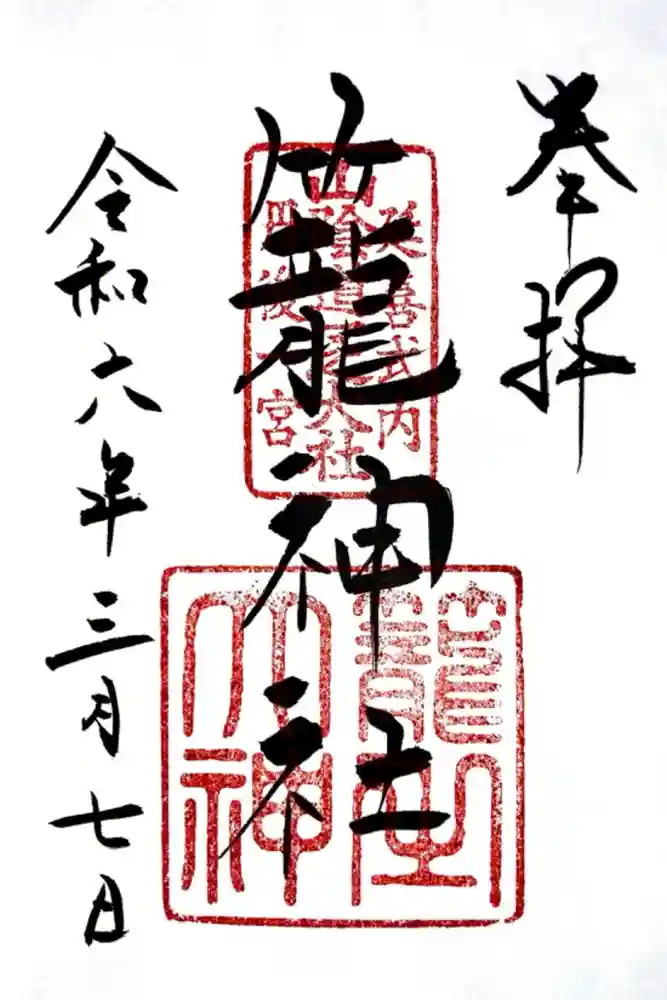 奉拝
籠神社
延喜式内
山陰道一大社
丹後一宮
籠之大神
令和六年三月七日